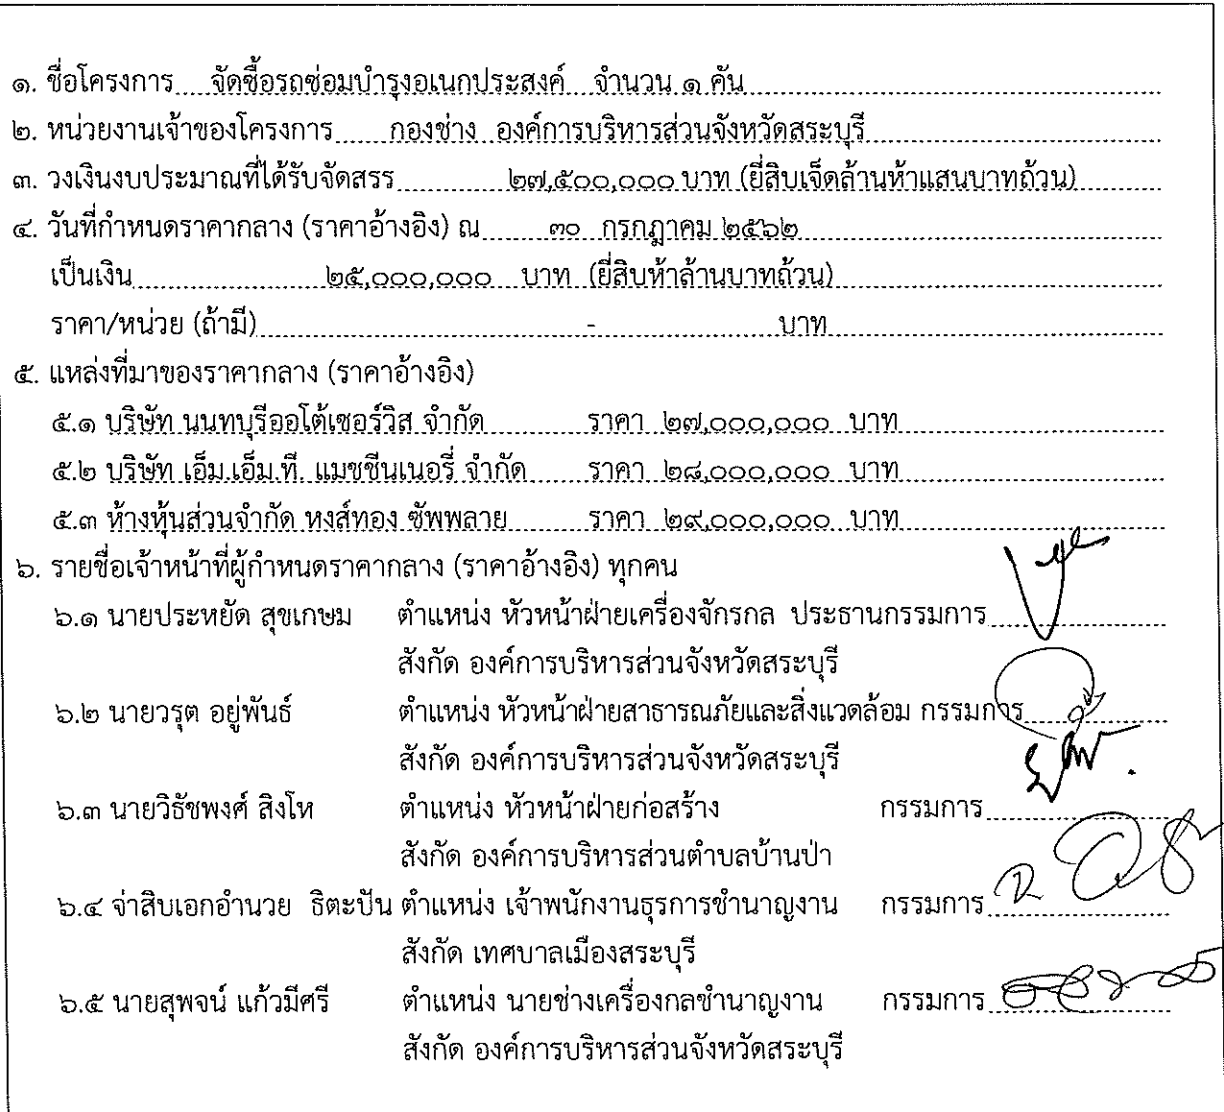 ๑. ชื่อโครงการ จัดซื้อรถซ่อมบำรุงอเนกประสงค์ จำนวน ๑ คัน
๒. หน่วยงานเจ้าของโครงการ กองช่าง องค์การบริหารส่วนจังหวัดสระบุรี
๓. วงเงินงบประมาณที่ได้รับจัดสรร ๒๗,๕๐๐,๐๐๐ บาท (ยี่สิบเจ็ดล้านห้าแสนบาทถ้วน)
๔. วันที่กำหนดราคากลาง (ราคาอ้างอิง) ณ ๓๐ กรกฎาคม ๒๕๖๒
เป็นเงิน ๒๕,๐๐๐,๐๐๐ บาท (ยี่สิบห้าล้านบาทถ้วน)
ราคา/หน่วย (ถ้ามี) - บาท
๕. แหล่งที่มาของราคากลาง (ราคาอ้างอิง)
๕.๑ บริษัท นนทบุรีออโต้เซอร์วิส จำกัด ราคา ๒๗,๐๐๐,๐๐๐ บาท
๕.๒ บริษัท เอ็ม.เอ็ม.ที. แมชชีนเนอรี่ จำกัด ราคา ๒๘,๐๐๐,๐๐๐ บาท
๕.๓ ห้างหุ้นส่วนจำกัด หงส์ทอง ซัพพลาย ราคา ๒๙,๐๐๐,๐๐๐ บาท
๖. รายชื่อเจ้าหน้าที่ผู้กำหนดราคากลาง (ราคาอ้างอิง) ทุกคน
๖.๑ นายประหยัด สุขเกษม ตำแหน่ง หัวหน้าฝ่ายเครื่องจักรกล ประธานกรรมการ
สังกัด องค์การบริหารส่วนจังหวัดสระบุรี
๖.๒ นายวรุต อยู่พันธ์ ตำแหน่ง หัวหน้าฝ่ายสาธารณภัยและสิ่งแวดล้อม กรรมการ
สังกัด องค์การบริหารส่วนจังหวัดสระบุรี
๖.๓ นายวิธัชพงศ์ สิงโห ตำแหน่ง หัวหน้าฝ่ายก่อสร้าง กรรมการ
สังกัด องค์การบริหารส่วนตำบลบ้านป่า
๖.๔ จ่าสิบเอกอำนวย ธิตะปัน ตำแหน่ง เจ้าพนักงานธุรการชำนาญงาน กรรมการ
สังกัด เทศบาลเมืองสระบุรี
๖.๕ นายสุพจน์ แก้วมีศรี ตำแหน่ง นายช่างเครื่องกลชำนาญงาน กรรมการ
สังกัด องค์การบริหารส่วนจังหวัดสระบุรี